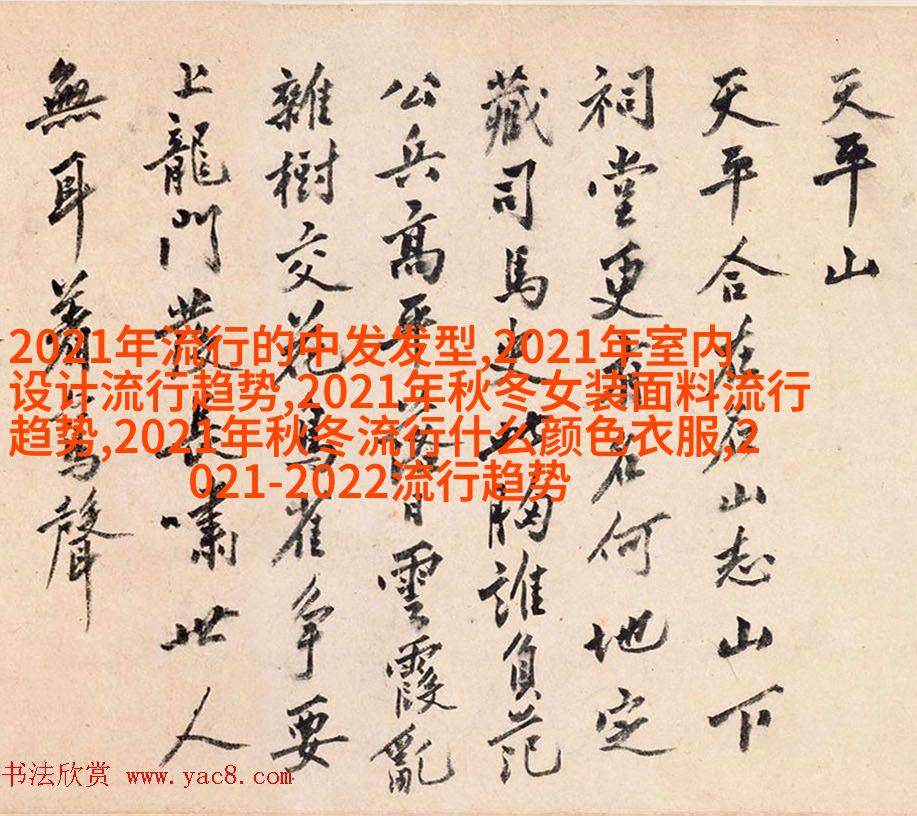 天平山
天平合名山志山下
祠堂更名何地定
藏司馬史此胸誰負范
公兵高平落日雲霞亂
雜樹交花鳥雀爭要
上龍門發長嘯世人
無耳聲
2021年流行的中发发型,2021年室内
设计流行趋势,2021年秋冬女装面料流行
趋势,2021年秋冬流行什么颜色衣服,2
021-2022流行趋势
书法欣赏 www.yac8.com